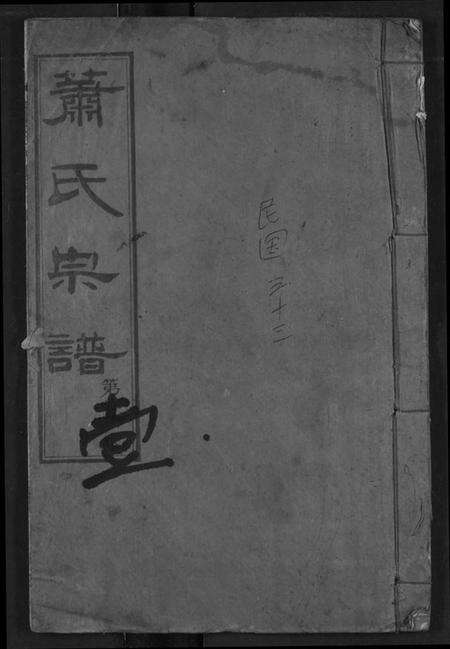 蕭氏宗譜
第
壹
民国三十三